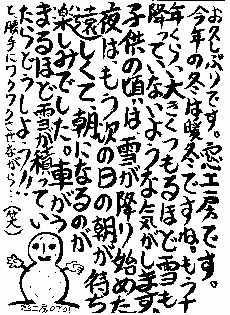 お久しぶりです。工房です。
今年の冬は暖冬ですね。もう十
年くらい、大きくつもるほど雪も
降っていないような気がします。
子供の頃は、雪が降り始めた
夜はもう次の日の朝が待ち
遠しくて、朝になるのが
楽しみでした。車がう
まるほど雪が積ってい
たらどうしよっ!!
と勝手にワクワクしながら…(笑)
工房0701